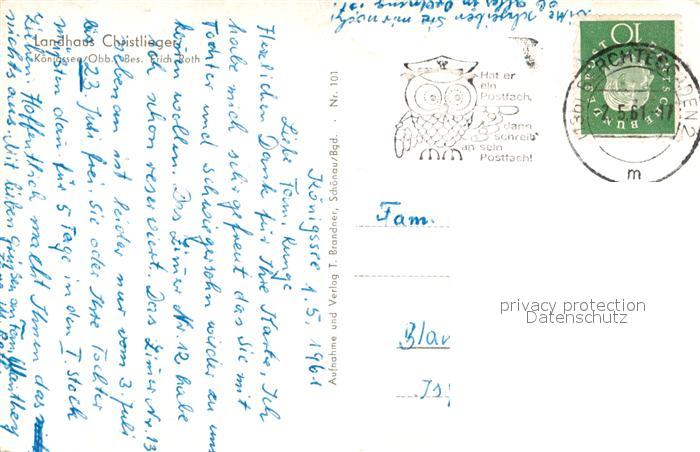 Landhaus Christlieger
Königssee/Obb. Bes. Erich Roth
Königssee 1.5.1961
Liebe Fam. Runge
Herzlichen Dank für Ihre Karte, Ich
habe mich sehr gefreut das Sie mit
Tochter und Schwiegersohn wieder zu uns
kom wollen. Das Zimer Nr. 12 habe
ich schon reserviert. Das Zimer Nr. 13
neben an ist leider nur vom 3. Juli
bis 23 Juli frei. Sie oder Ihre Tochter
müssten dan für 5 Tage in den I. Stock
ziehen. Hoffentlich macht Ihnen das
nichts aus. Mit lieben Grüßen an Fam.
Bitte schreiben Sie mir noch
ob alles in Ordnung ist!
Aufnahme und Verlag T. Brandner, Schönau/Bgd. · Nr. 101
Hat er
ein
Postfach,
dann
schreib
an sein
Postfach!
10
DEUTSCHE BUNDESPOST
BERCHTESGADEN 2
2.5.61
m
Fam.
privacy protection
Datenschutz